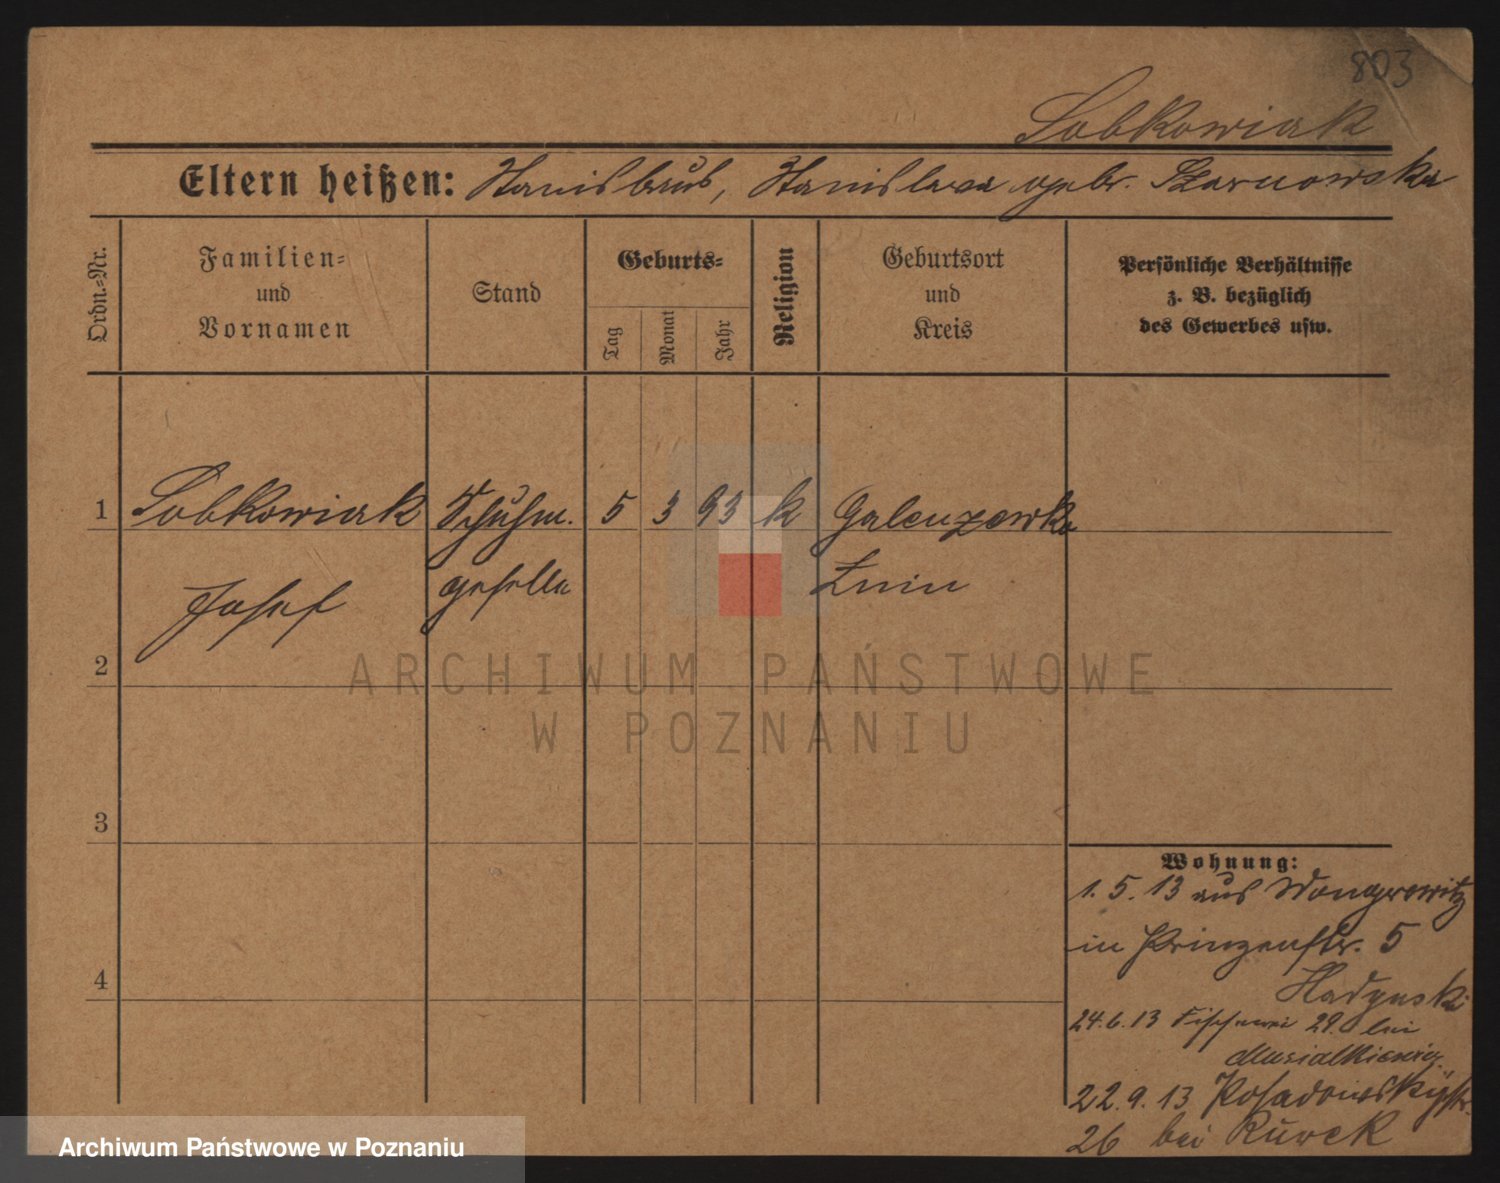 803
Sobkowiak
Eltern heißen: Stanislaus, Stanislawa gebr. Szarnowska
Ordn.-Nr.
Familien-
und
Vornamen
Stand
Geburts-
Tag
Monat
Jahr
Religion
Geburtsort
und
Kreis
Persönliche Verhältnisse
z. B. bezüglich
des Gewerbes usw.
1 Sobkowiak Schuhm. 5 3 93 k
geselle Znin
Josef
2
ARCHIWUM PAŃSTWOWE
W POZNANIU
3
4
Wohnung:
1. 5. 13 aus Wongrowitz
in Prinzenstr. 5
24. 6. 13 Fischerei 29. bei
22. 9. 13 Posadowskystr.
26 bei Kurek
Archiwum Państwowe w Poznaniu